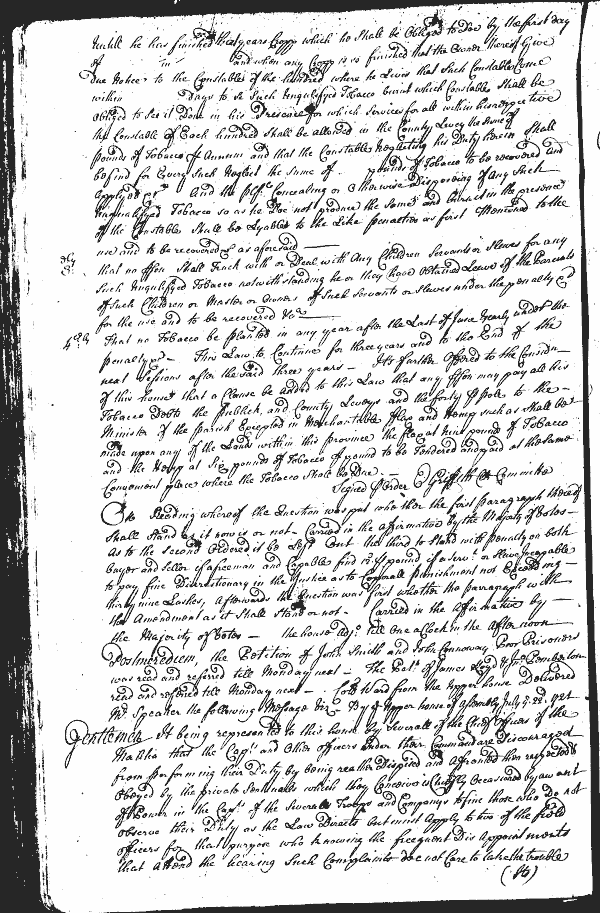 Untill he has finished that years Cropp which he Shall be Obliged to Doe by the first day
of in and when any Cropp is so finished that the Owner thereof Give
due Notice to the Constable of the hundred where he Lives that Such Constable Come
within days to See Such Unqualifyed Tobacco burnt which Constable Shall be
Obliged to See it Done in his Presence for which Services for all within his respective
the Constable of Each hundred Shall be allowed in the County Levey the Sume of
pounds of Tobacco Annum and that the Constable Neglecting his Duty herein Shall
be find for Every Such Neglect the Sume of pounds of Tobacco to be recovered and
Apply'd as And the Concealing or Otherwise Disposeing of any Such
unqualifyed Tobacco so as he Doe not produce the Same and burn it in the presence
of the Constable Shall be Lyable to the Like penalties as first Mentioned to the
use and to be recovered as aforesaid
that no Shall Truck with or Deal with Any Children Servants or Slaves for any
Such Unqualifyed Tobacco notwithstanding he or they have obtained Leave of the Parents
of Such Children or Master or Owners of Such Servants or Slaves under the penalty
for the use and to be recovered &c
That no Tobacco be planted in any year after the Last of June Yearly under the
penalty — This Law to Continue for three years and to the End of the
next Sessions after the said three years — It's further Offered to the Consider
of this house that a Clause be added to this Law that any may pay all his
Tobacco Debts the Publick, and County Leveys and the forty pole to the
Minister of the parish Excepted in Merchantable Flax and Hemp such as Shall be
made upon any of the Lands within this province the flax at Nine pound of Tobacco
and the Hemp at Six pounds of Tobacco pound to be Tendered and paid at the Same
Convenient place where the Tobacco Shall be Due
Signed Order Griffith Committee
On Reading whereof the Question was put whether the first paragraph thereof
Shall Stand as it now is or not - Carried in the Affirmative by the Majority of Votes
As to the second Ordered it be Left Out the third to Stand with penalty on both
buyer and Seller if a freeman and Capable find pound if a serv.t or Slave incapable
to pay fine Discretionary in the Justice as to Corporall punishment not Exceeding
thirty nine Lashes, Afterwards the Question was first whether the paragraph with
the Amendment as it Shall Stand or not - Carried in the Affirmative by
the Majority of Votes — the house adj.d till One a Clock in the Afternoon
Postmeredeem the Petition of John Smith and John Connoway Poor Prisoners
was read and referred till Monday next — The Pet.n of James & Pemberton
read and referred till Monday next — Coll. Ward from the Upper house Delivered
Mr. Speaker the following Message Viz. By the Upper house of Assembly July 22. 1721
Gentlemen It being represented to this house by Severall of the Chief Officers of the
Malitia that the Capt. and Other officers under their Command are Discouraged
from Performing their Duty by being neather Dispised and Affronted then respected &
Obeyed by the private Sentinalls which they Conceive is Chiefly Occasioned by a want
of Power in the Capt. of the Severall Troops and Companys to fine those who do not
observe their Duty as the Law Directs but must Apply to two of the field
officers for that purpose who knowing the frequent Dis Appointments
that Attend the hearing Such Complaints doe not Care to take the trouble